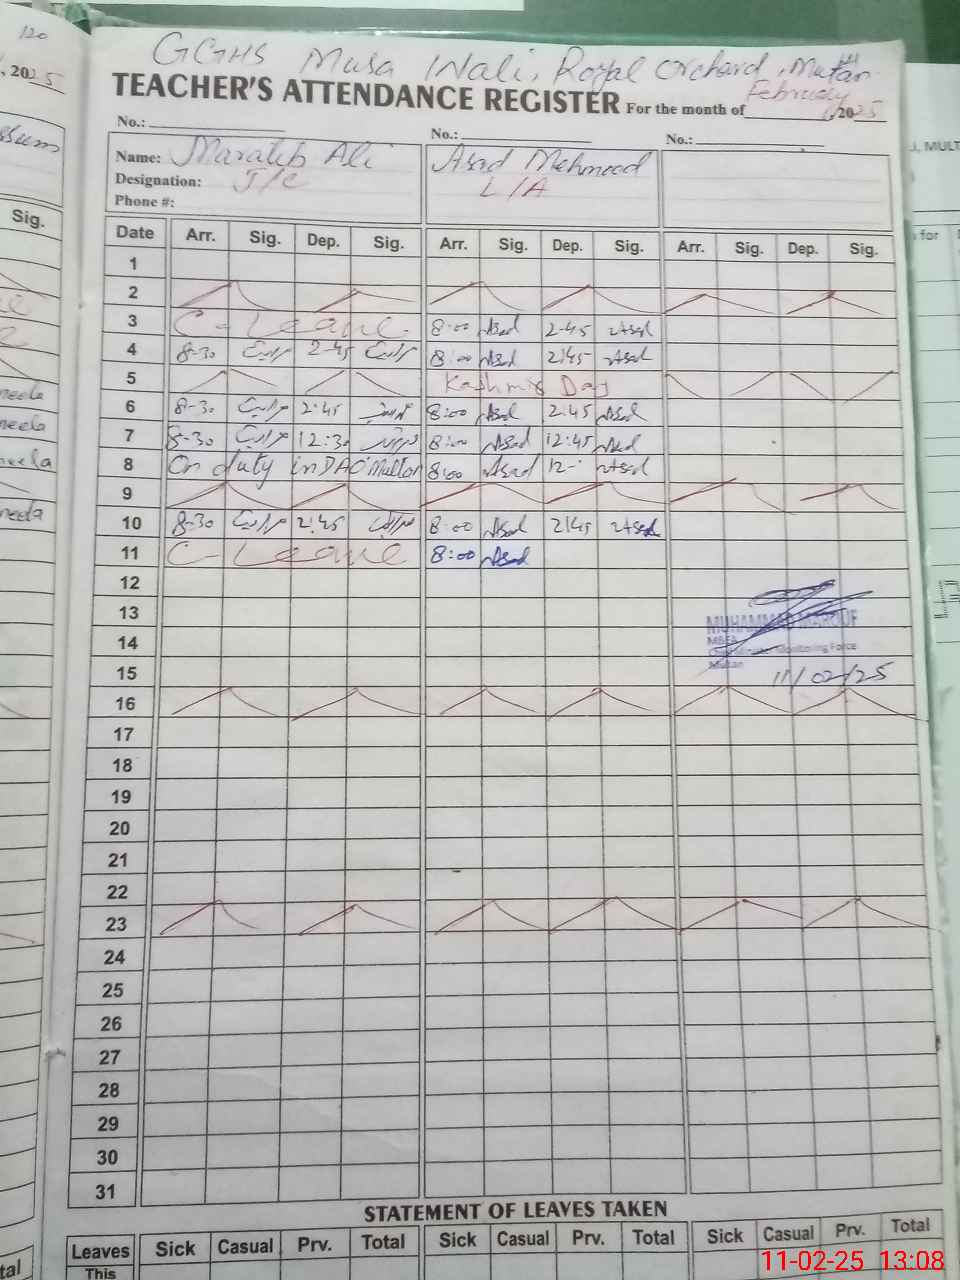 120
, 2025
ssum
Sig.
GGHS Musa Wali, Royal Orchard, Multan
TEACHER'S ATTENDANCE REGISTER For the month of February 2025
No.: No.: No.:
Name: Maratib Ali Asad Mehmood
Designation: J/C L/A
Phone #:
Date Arr. Sig. Dep. Sig. Arr. Sig. Dep. Sig. Arr. Sig. Dep. Sig.
1
2
3 C-Leave. 8:00 Asad 2-45 Asad
4 8-30 مراتب 2-45 مراتب 8:00 Asad 2:45 Asad
5 Kashmir Day
6 8-30 مراتب 2:45 8:00 Asad 2:45 Asad
7 8-30 مراتب 12:30 8:00 Asad 12:45 Asad
8 On duty in DAO Multan 8:00 Asad 12- Asad
9
10 8-30 مراتب 2:45 مراتب 8:00 Asad 2:45 Asad
11 C-Leave 8:00 Asad
12
13 MUHAMMAD MAROOF
14 MBEA
Monitoring Force
15 Multan 11/02/25
16
17
18
19
20
21
22
23
24
25
26
27
28
29
30
31
STATEMENT OF LEAVES TAKEN
Leaves Sick Casual Prv. Total Sick Casual Prv. Total Sick Casual Prv. Total
This
11-02-25 13:08
tal
J, MULT
for